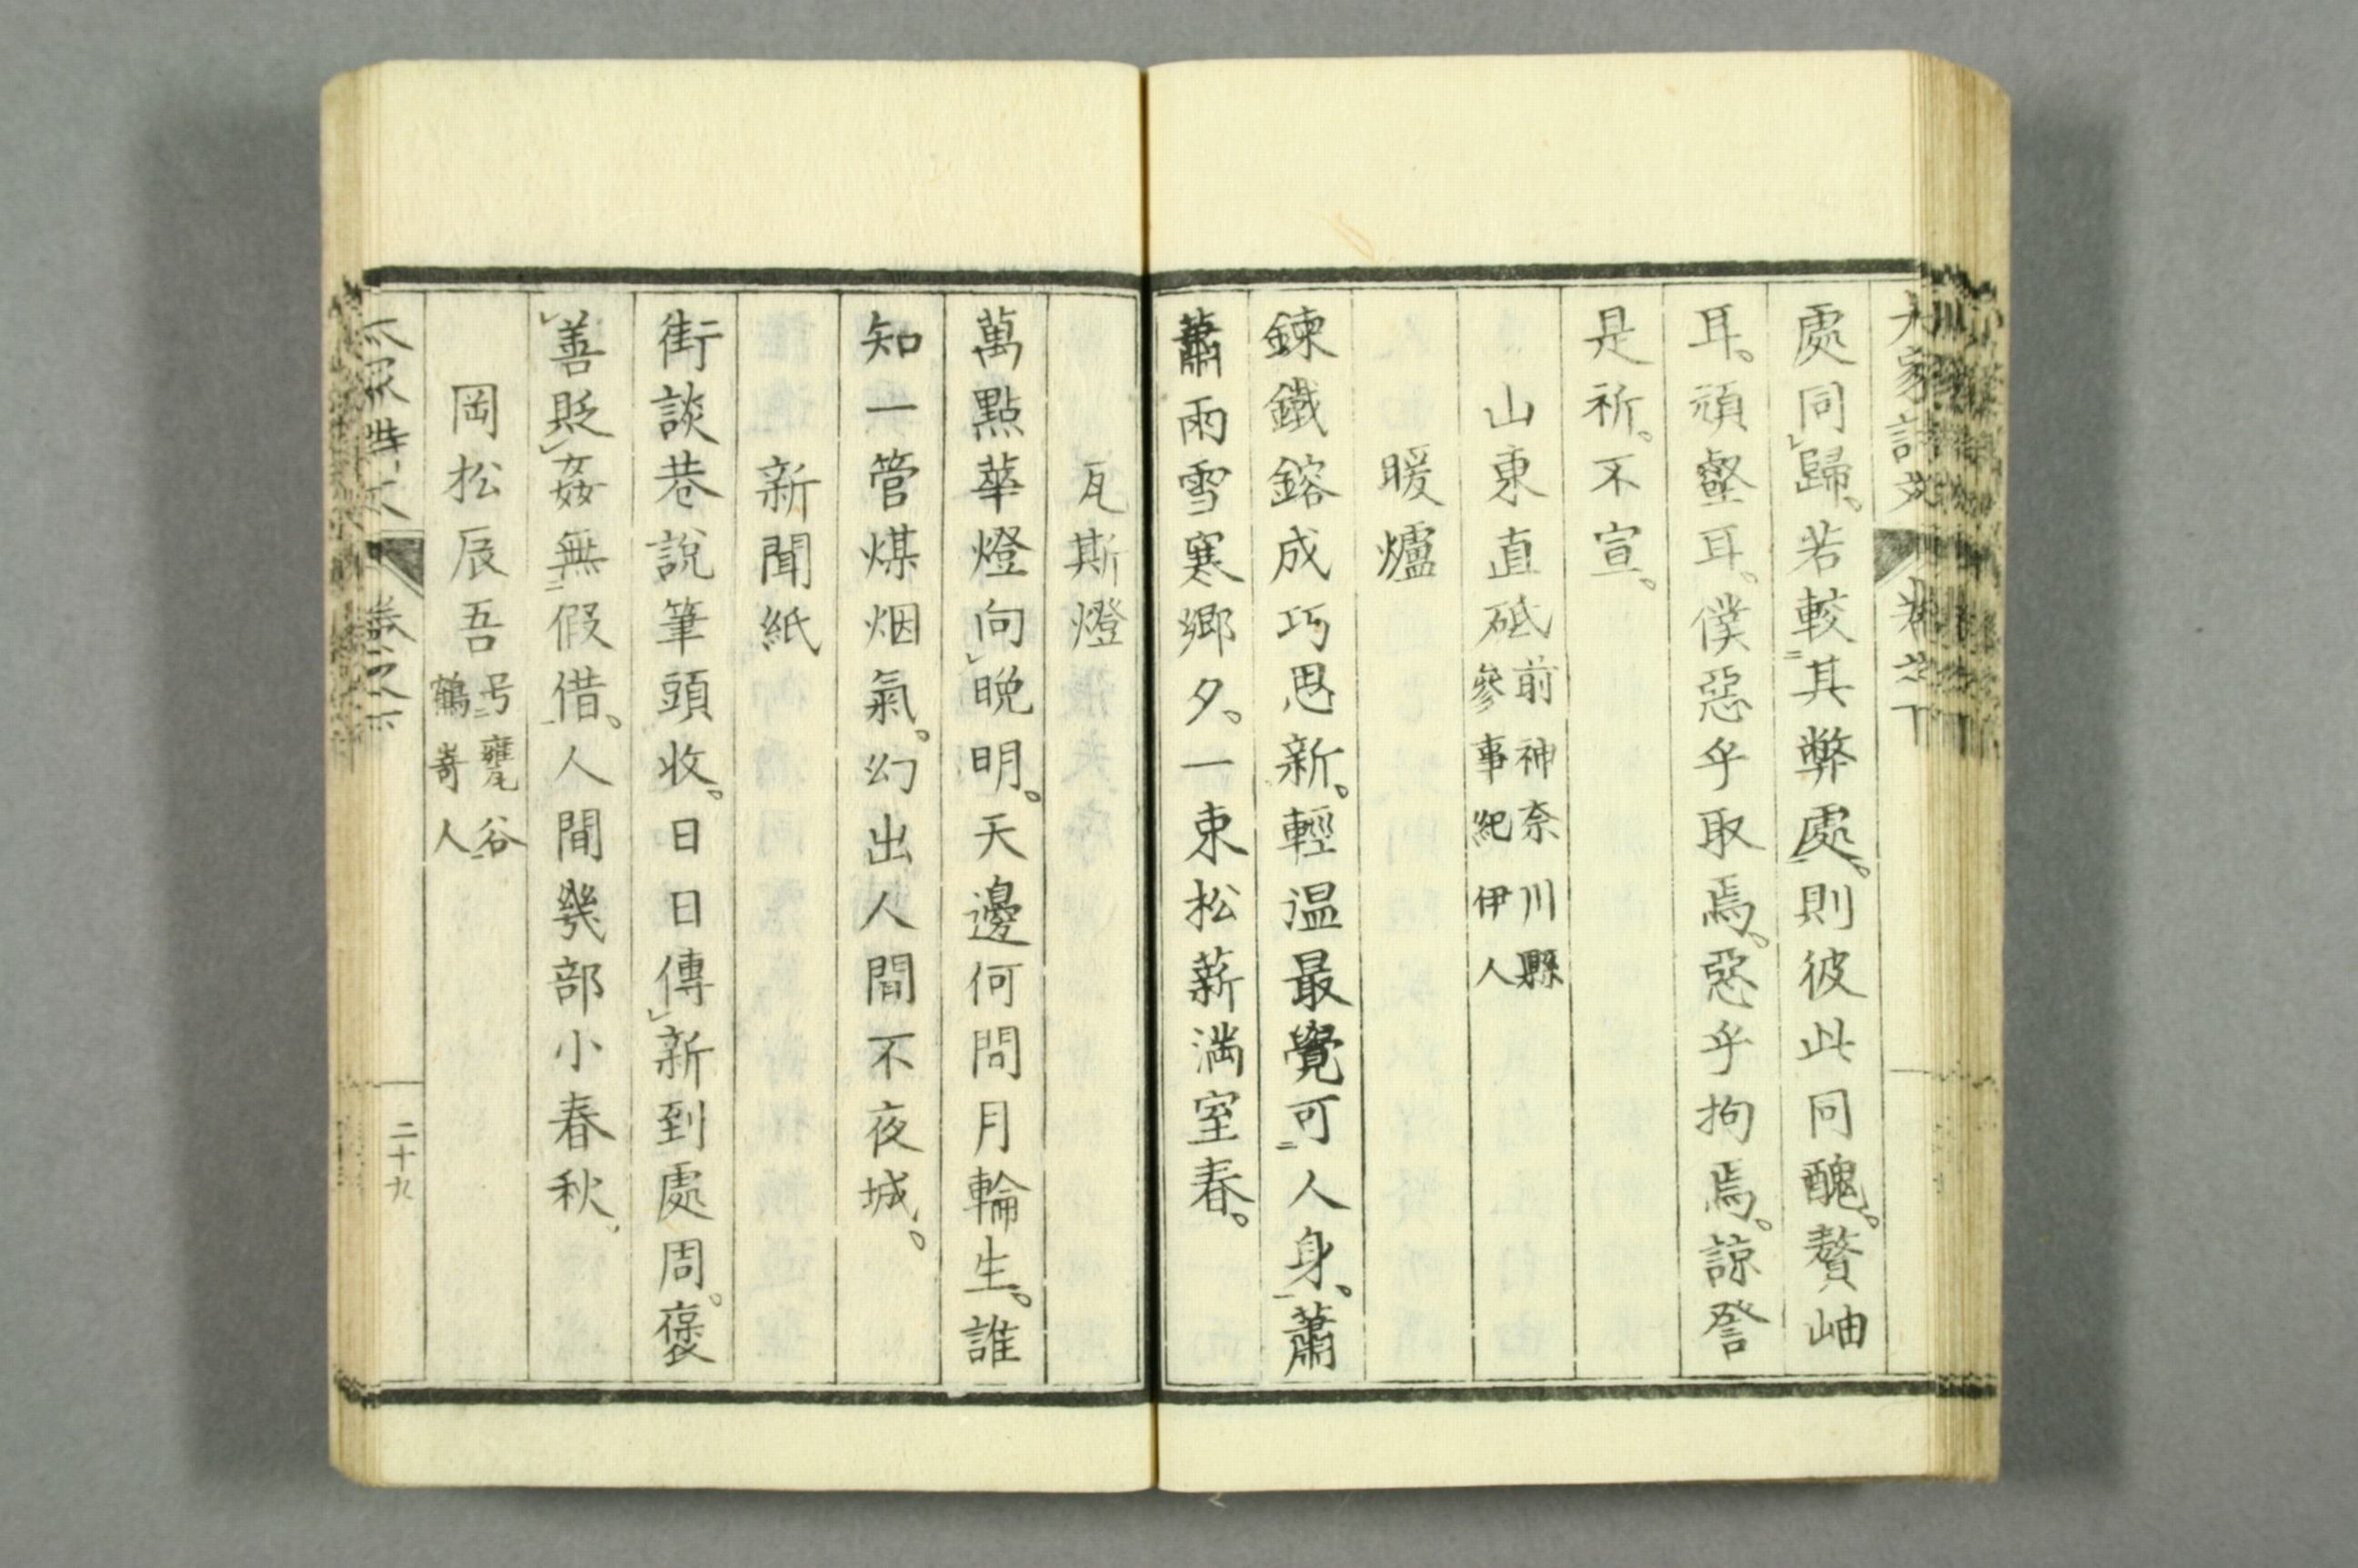 大家詩文 卷之下
處同歸。若較其弊處。則彼此同醜。贅岫
耳。頑壑耳。僕惡乎取焉。惡乎拘焉。諒詧
是祈。不宣。
山東直砥 前神奈川縣
參事紀伊人
暖爐
鍊鐵鎔成巧思新。輕温最覺可人身。蕭
蕭雨雪寒鄉夕。一束松薪満室春。
瓦斯燈
萬點華燈向晚明。天邊何問月輪生。誰
知一管煤烟氣。幻出人間不夜城。
新聞紙
街談巷說筆頭收。日日傳新到處周。褒
善貶姦無假借。人間幾部小春秋。
岡松辰吾 号甕谷
鶴嵜人
卷之下
二十九